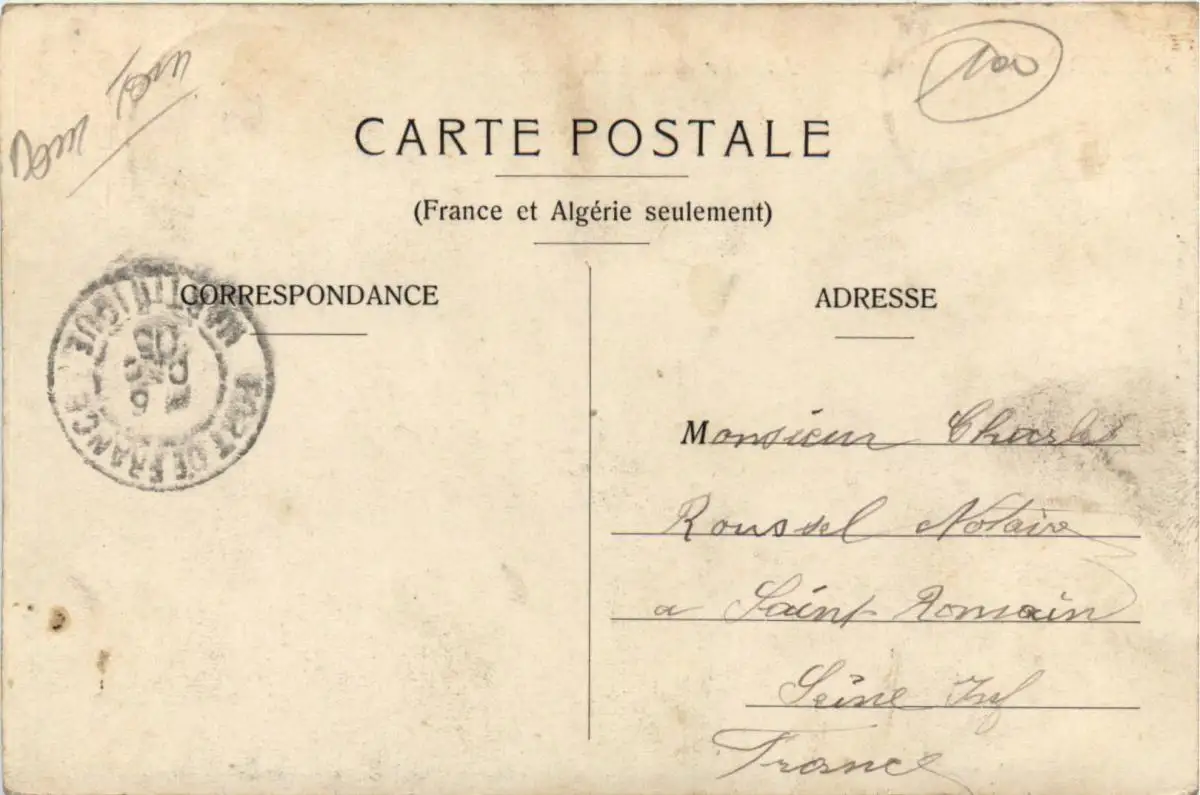 100
CARTE POSTALE
(France et Algérie seulement)
CORRESPONDANCE
ADRESSE
MARTINIQUE
FORT DE FRANCE
Monsieur Charles
Roussel Notaire
a Saint Romain
Seine Inf
France